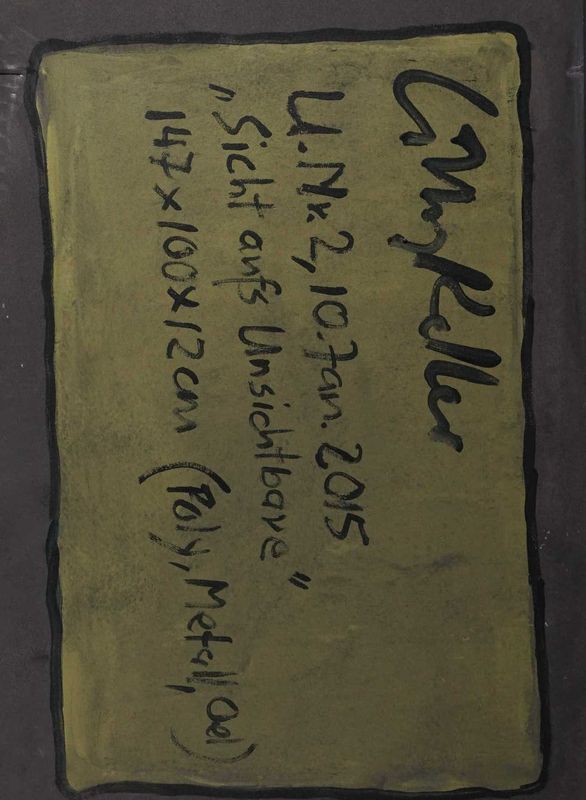 Lilly Keller
U.Nr. 2, 10. Jan. 2015
„Sicht aufs Unsichtbare"
147x100x12cm (Poly, Metall, Oel)